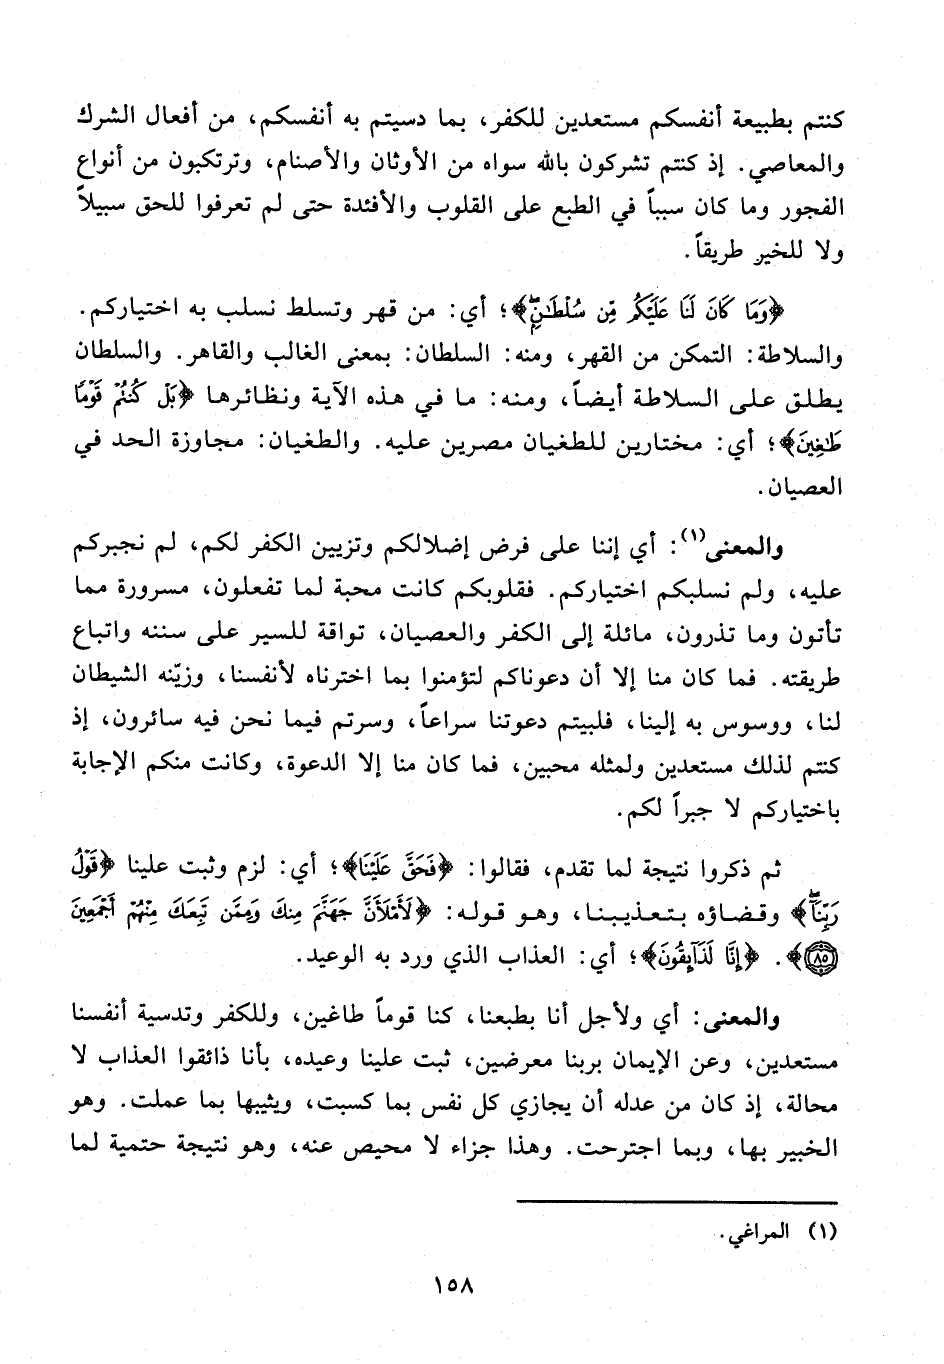 كنتم بطبيعة أنفسكم مستعدين للكفر، بما دسيتم به أنفسكم، من أفعال الشرك
والمعاصي. إذ كنتم تشركون بالله سواه من الأوثان والأصنام، وترتكبون من أنواع
الفجور وما كان سبباً في الطبع على القلوب والأفئدة حتى لم تعرفوا للحق سبيلاً
ولا للخير طريقاً.
﴿وَمَا كَانَ لَنَا عَلَيْكُمْ مِّن سُلْطَٰنٍۭۖ﴾؛ أي: من قهر وتسلط نسلب به اختياركم.
والسلاطة: التمكن من القهر، ومنه: السلطان: بمعنى الغالب والقاهر. والسلطان
يطلق على السلاطة أيضاً، ومنه: ما في هذه الآية ونظائرها ﴿بَلْ كُنتُمْ قَوْمًا
طَٰغِينَ﴾؛ أي: مختارين للطغيان مصرين عليه. والطغيان: مجاوزة الحد في
العصيان.
والمعنى(١): أي إننا على فرض إضلالكم وتزيين الكفر لكم، لم نجبركم
عليه، ولم نسلبكم اختياركم. فقلوبكم كانت محبة لما تفعلون، مسرورة مما
تأتون وما تذرون، مائلة إلى الكفر والعصيان، تواقة للسير على سننه واتباع
طريقته. فما كان منا إلا أن دعوناكم لتؤمنوا بما اخترناه لأنفسنا، وزيّنه الشيطان
لنا، ووسوس به إلينا، فلبيتم دعوتنا سراعاً، وسرتم فيما نحن فيه سائرون، إذ
كنتم لذلك مستعدين ولمثله محبين، فما كان منا إلا الدعوة، وكانت منكم الإجابة
باختياركم لا جبراً لكم.
ثم ذكروا نتيجة لما تقدم، فقالوا: ﴿فَحَقَّ عَلَيْنَا﴾؛ أي: لزم وثبت علينا ﴿قَوْلُ
رَبِّنَآۖ﴾ وقضاؤه بتعذيبنا، وهو قوله: ﴿لَأَمْلَأَنَّ جَهَنَّمَ مِنكَ وَمِمَّن تَبِعَكَ مِنْهُمْ أَجْمَعِينَ
﴿٨٥﴾﴾. ﴿إِنَّا لَذَآئِقُونَ﴾؛ أي: العذاب الذي ورد به الوعيد.
والمعنى: أي ولأجل أنا بطبعنا، كنا قوماً طاغين، وللكفر وتدسية أنفسنا
مستعدين، وعن الإيمان بربنا معرضين، ثبت علينا وعيده، بأنا ذائقوا العذاب لا
محالة، إذ كان من عدله أن يجازي كل نفس بما كسبت، ويثيبها بما عملت. وهو
الخبير بها، وبما اجترحت. وهذا جزاء لا محيص عنه، وهو نتيجة حتمية لما
(١) المراغي.
١٥٨